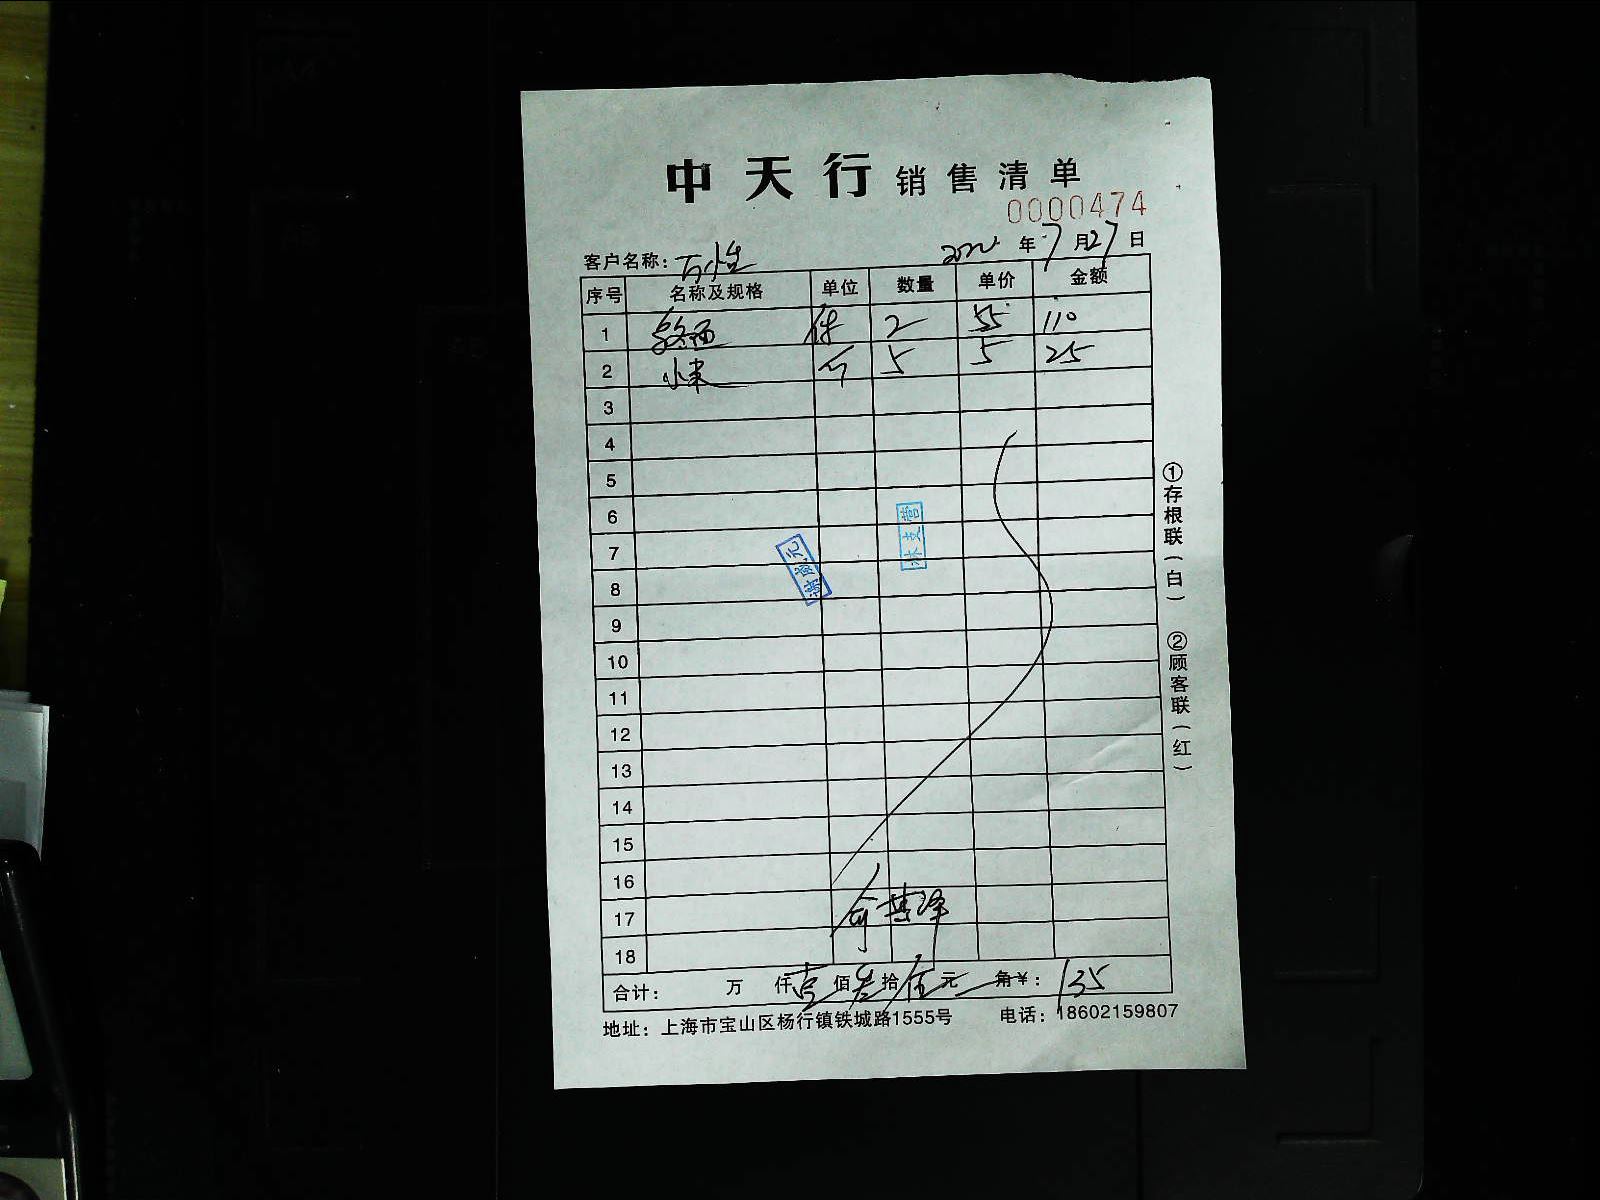 中天行销售清单
0000474
客户名称: 2022年7月27日
序号 名称及规格 单位 数量 单价 金额
1 件 2 55 110
2 小米 个 5 5 25
3
4
5
6
7
8
9
10
11
12
13
14
15
16
17
18
合计: 万 仟壹佰叁拾伍元 角¥: 135
地址: 上海市宝山区杨行镇铁城路1555号 电话: 18602159807
①存根联(白) ②顾客联(红)